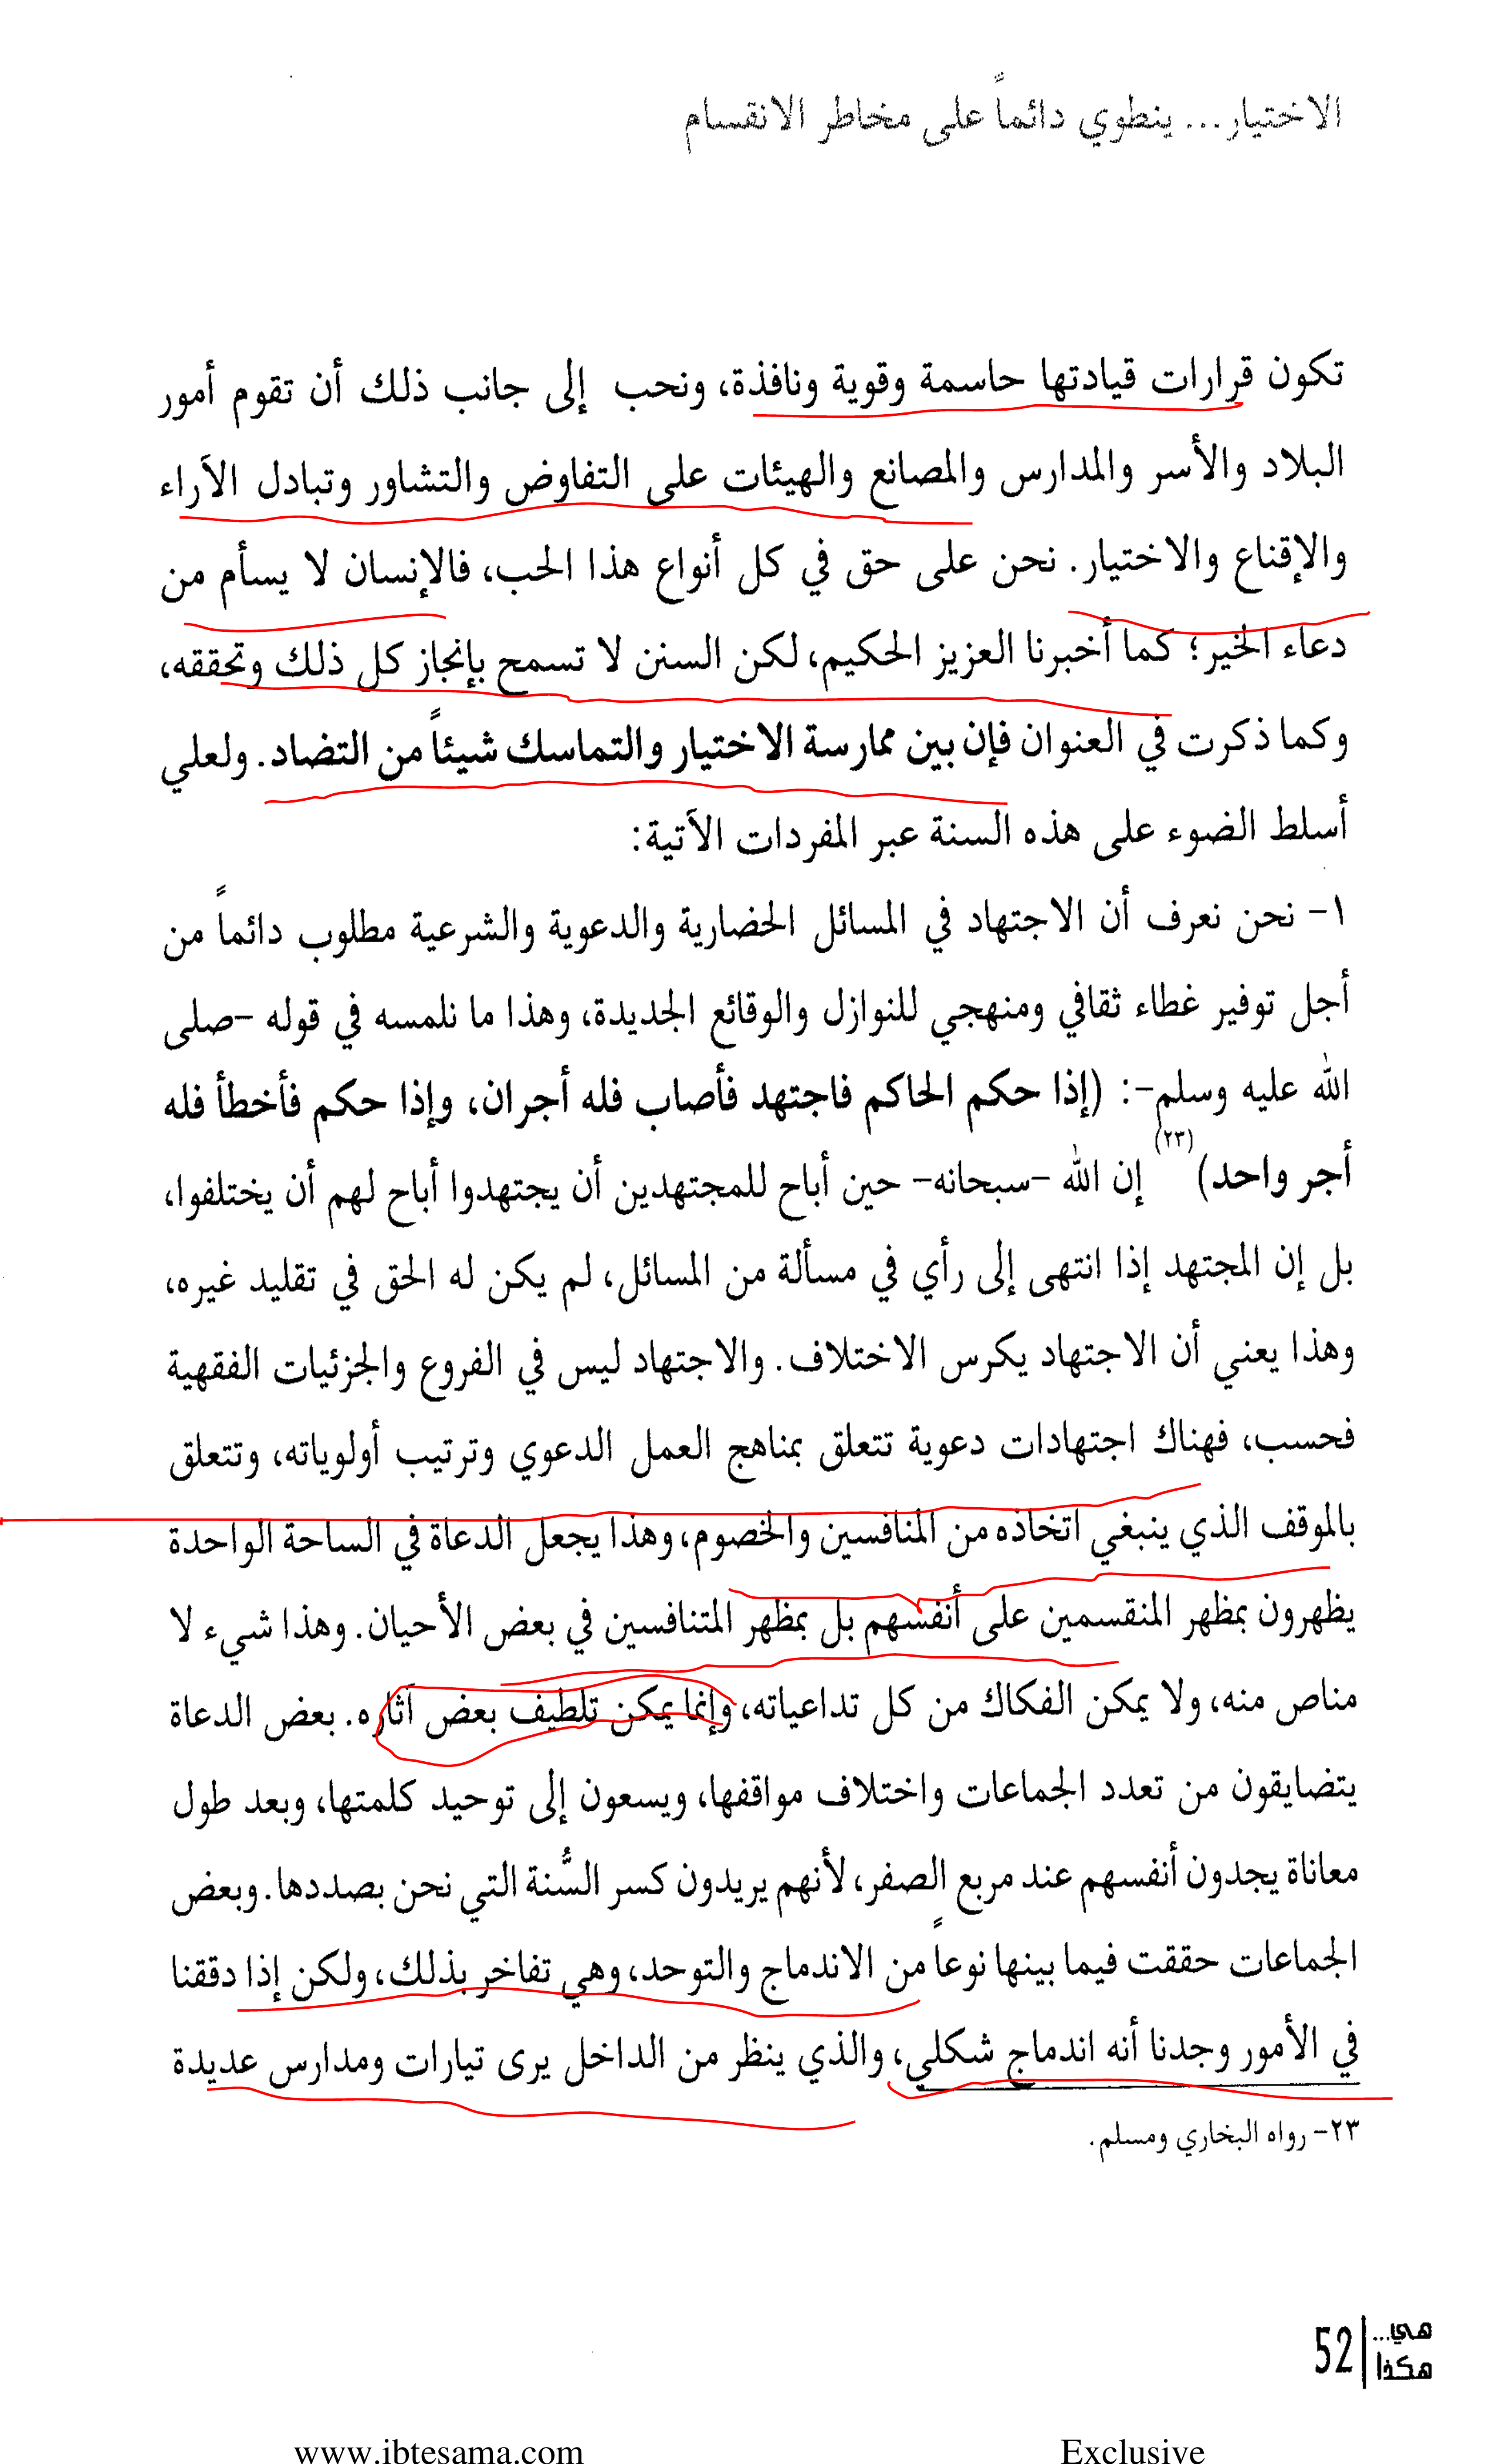 الاختيار... ينطوي دائماً على مخاطر الانقسام
تكون قرارات قيادتها حاسمة وقوية ونافذة، ونحب إلى جانب ذلك أن تقوم أمور
البلاد والأسر والمدارس والمصانع والهيئات على التفاوض والتشاور وتبادل الآراء
والإقناع والاختيار. نحن على حق في كل أنواع هذا الحب، فالإنسان لا يسأم من
دعاء الخير؛ كما أخبرنا العزيز الحكيم، لكن السنن لا تسمح بإنجاز كل ذلك وتحققه،
وكما ذكرت في العنوان فإن بين ممارسة الاختيار والتماسك شيئاً من التضاد. ولعلي
أسلط الضوء على هذه السنة عبر المفردات الآتية:
١- نحن نعرف أن الاجتهاد في المسائل الحضارية والدعوية والشرعية مطلوب دائماً من
أجل توفير غطاء ثقافي ومنهجي للنوازل والوقائع الجديدة، وهذا ما نلمسه في قوله -صلى
الله عليه وسلم-: (إذا حكم الحاكم فاجتهد فأصاب فله أجران، وإذا حكم فأخطأ فله
أجر واحد)(٢٣) إن الله -سبحانه- حين أباح للمجتهدين أن يجتهدوا أباح لهم أن يختلفوا،
بل إن المجتهد إذا انتهى إلى رأي في مسألة من المسائل، لم يكن له الحق في تقليد غيره،
وهذا يعني أن الاجتهاد يكرس الاختلاف. والاجتهاد ليس في الفروع والجزئيات الفقهية
فحسب، فهناك اجتهادات دعوية تتعلق بمناهج العمل الدعوي وترتيب أولوياته، وتتعلق
بالموقف الذي ينبغي اتخاذه من المنافسين والخصوم، وهذا يجعل الدعاة في الساحة الواحدة
يظهرون بمظهر المنقسمين على أنفسهم بل بمظهر المتنافسين في بعض الأحيان. وهذا شيء لا
مناص منه، ولا يمكن الفكاك من كل تداعياته، وإنما يمكن تلطيف بعض آثاره. بعض الدعاة
يتضايقون من تعدد الجماعات واختلاف مواقفها، ويسعون إلى توحيد كلمتها، وبعد طول
معاناة يجدون أنفسهم عند مربع الصفر، لأنهم يريدون كسر السُّنة التي نحن بصددها. وبعض
الجماعات حققت فيما بينها نوعاً من الاندماج والتوحد، وهي تفاخر بذلك، ولكن إذا دققنا
في الأمور وجدنا أنه اندماج شكلي، والذي ينظر من الداخل يرى تيارات ومدارس عديدة
٢٣- رواه البخاري ومسلم.
هي...
هكذا
52
www.ibtesama.com Exclusive